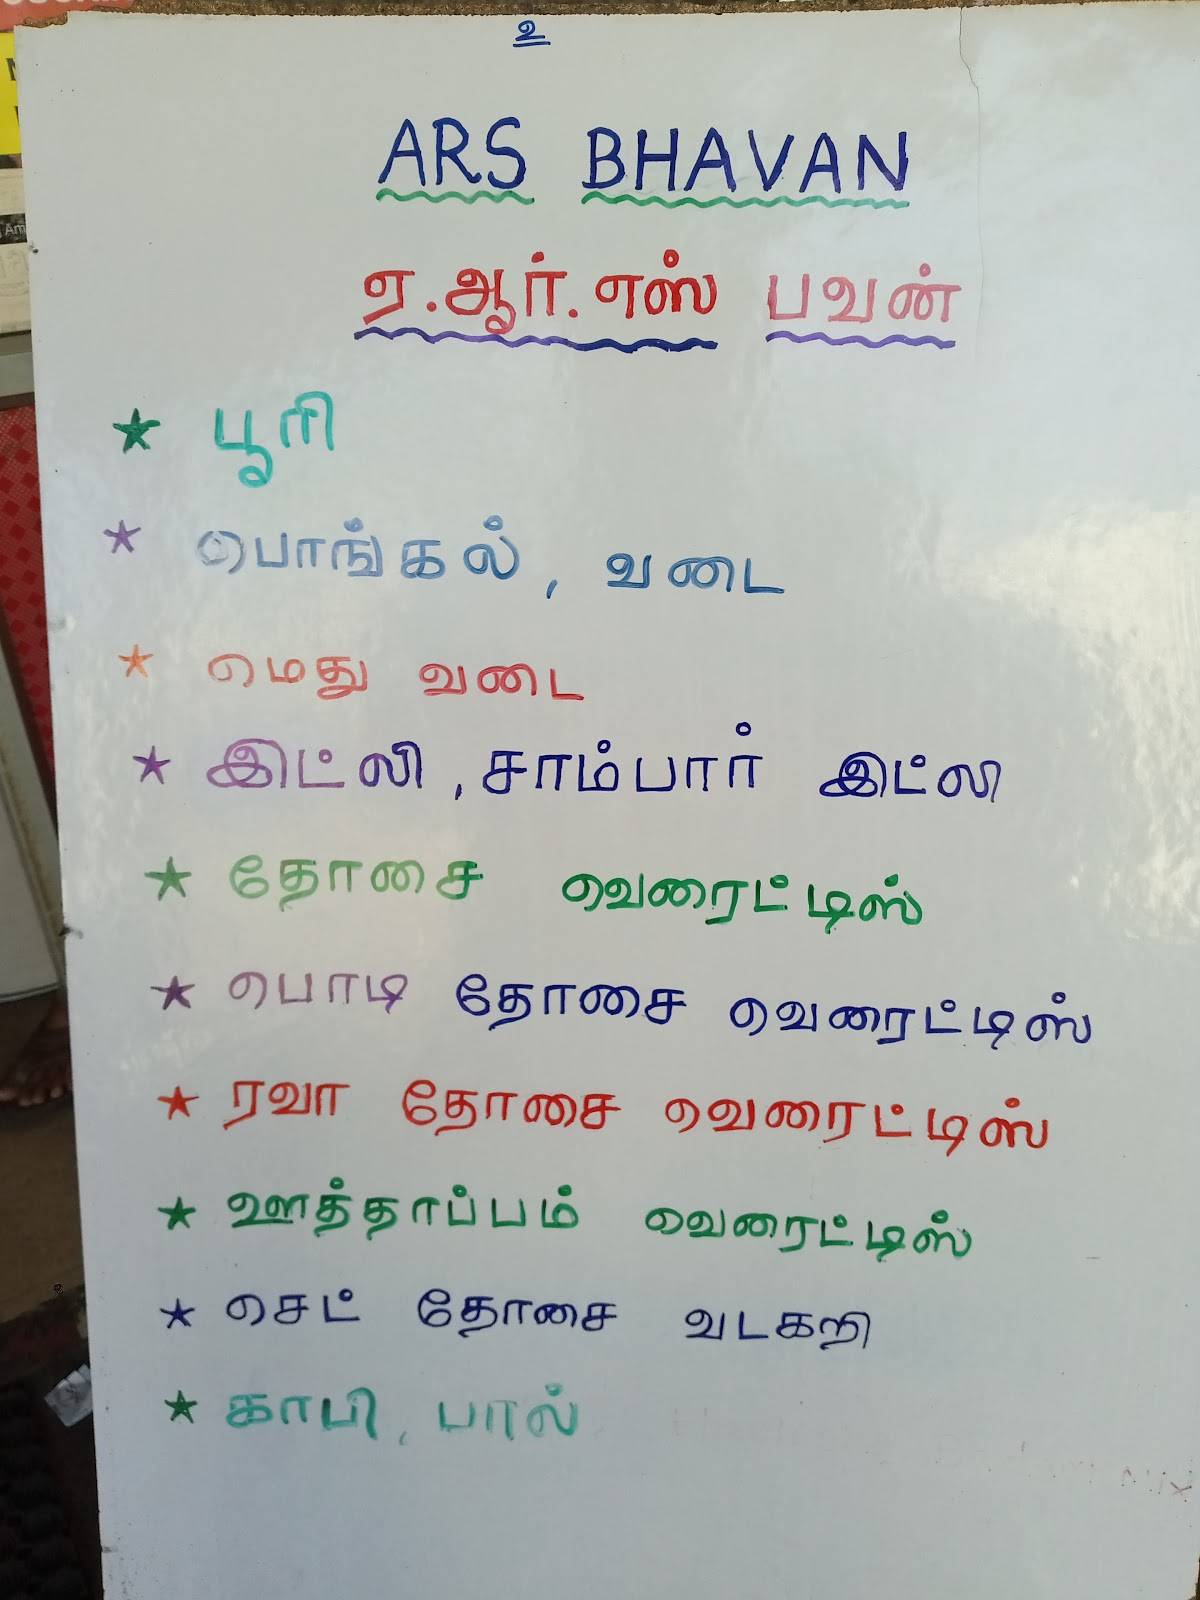 உ
ARS BHAVAN
ஏ.ஆர்.எஸ் பவன்
★ பூரி
★ பொங்கல், வடை
★ மெது வடை
★ இட்லி, சாம்பார் இட்லி
★ தோசை வெரைட்டிஸ்
★ பொடி தோசை வெரைட்டிஸ்
★ ரவா தோசை வெரைட்டிஸ்
★ ஊத்தாப்பம் வெரைட்டிஸ்
★ செட் தோசை வடகறி
★ காபி, பால்